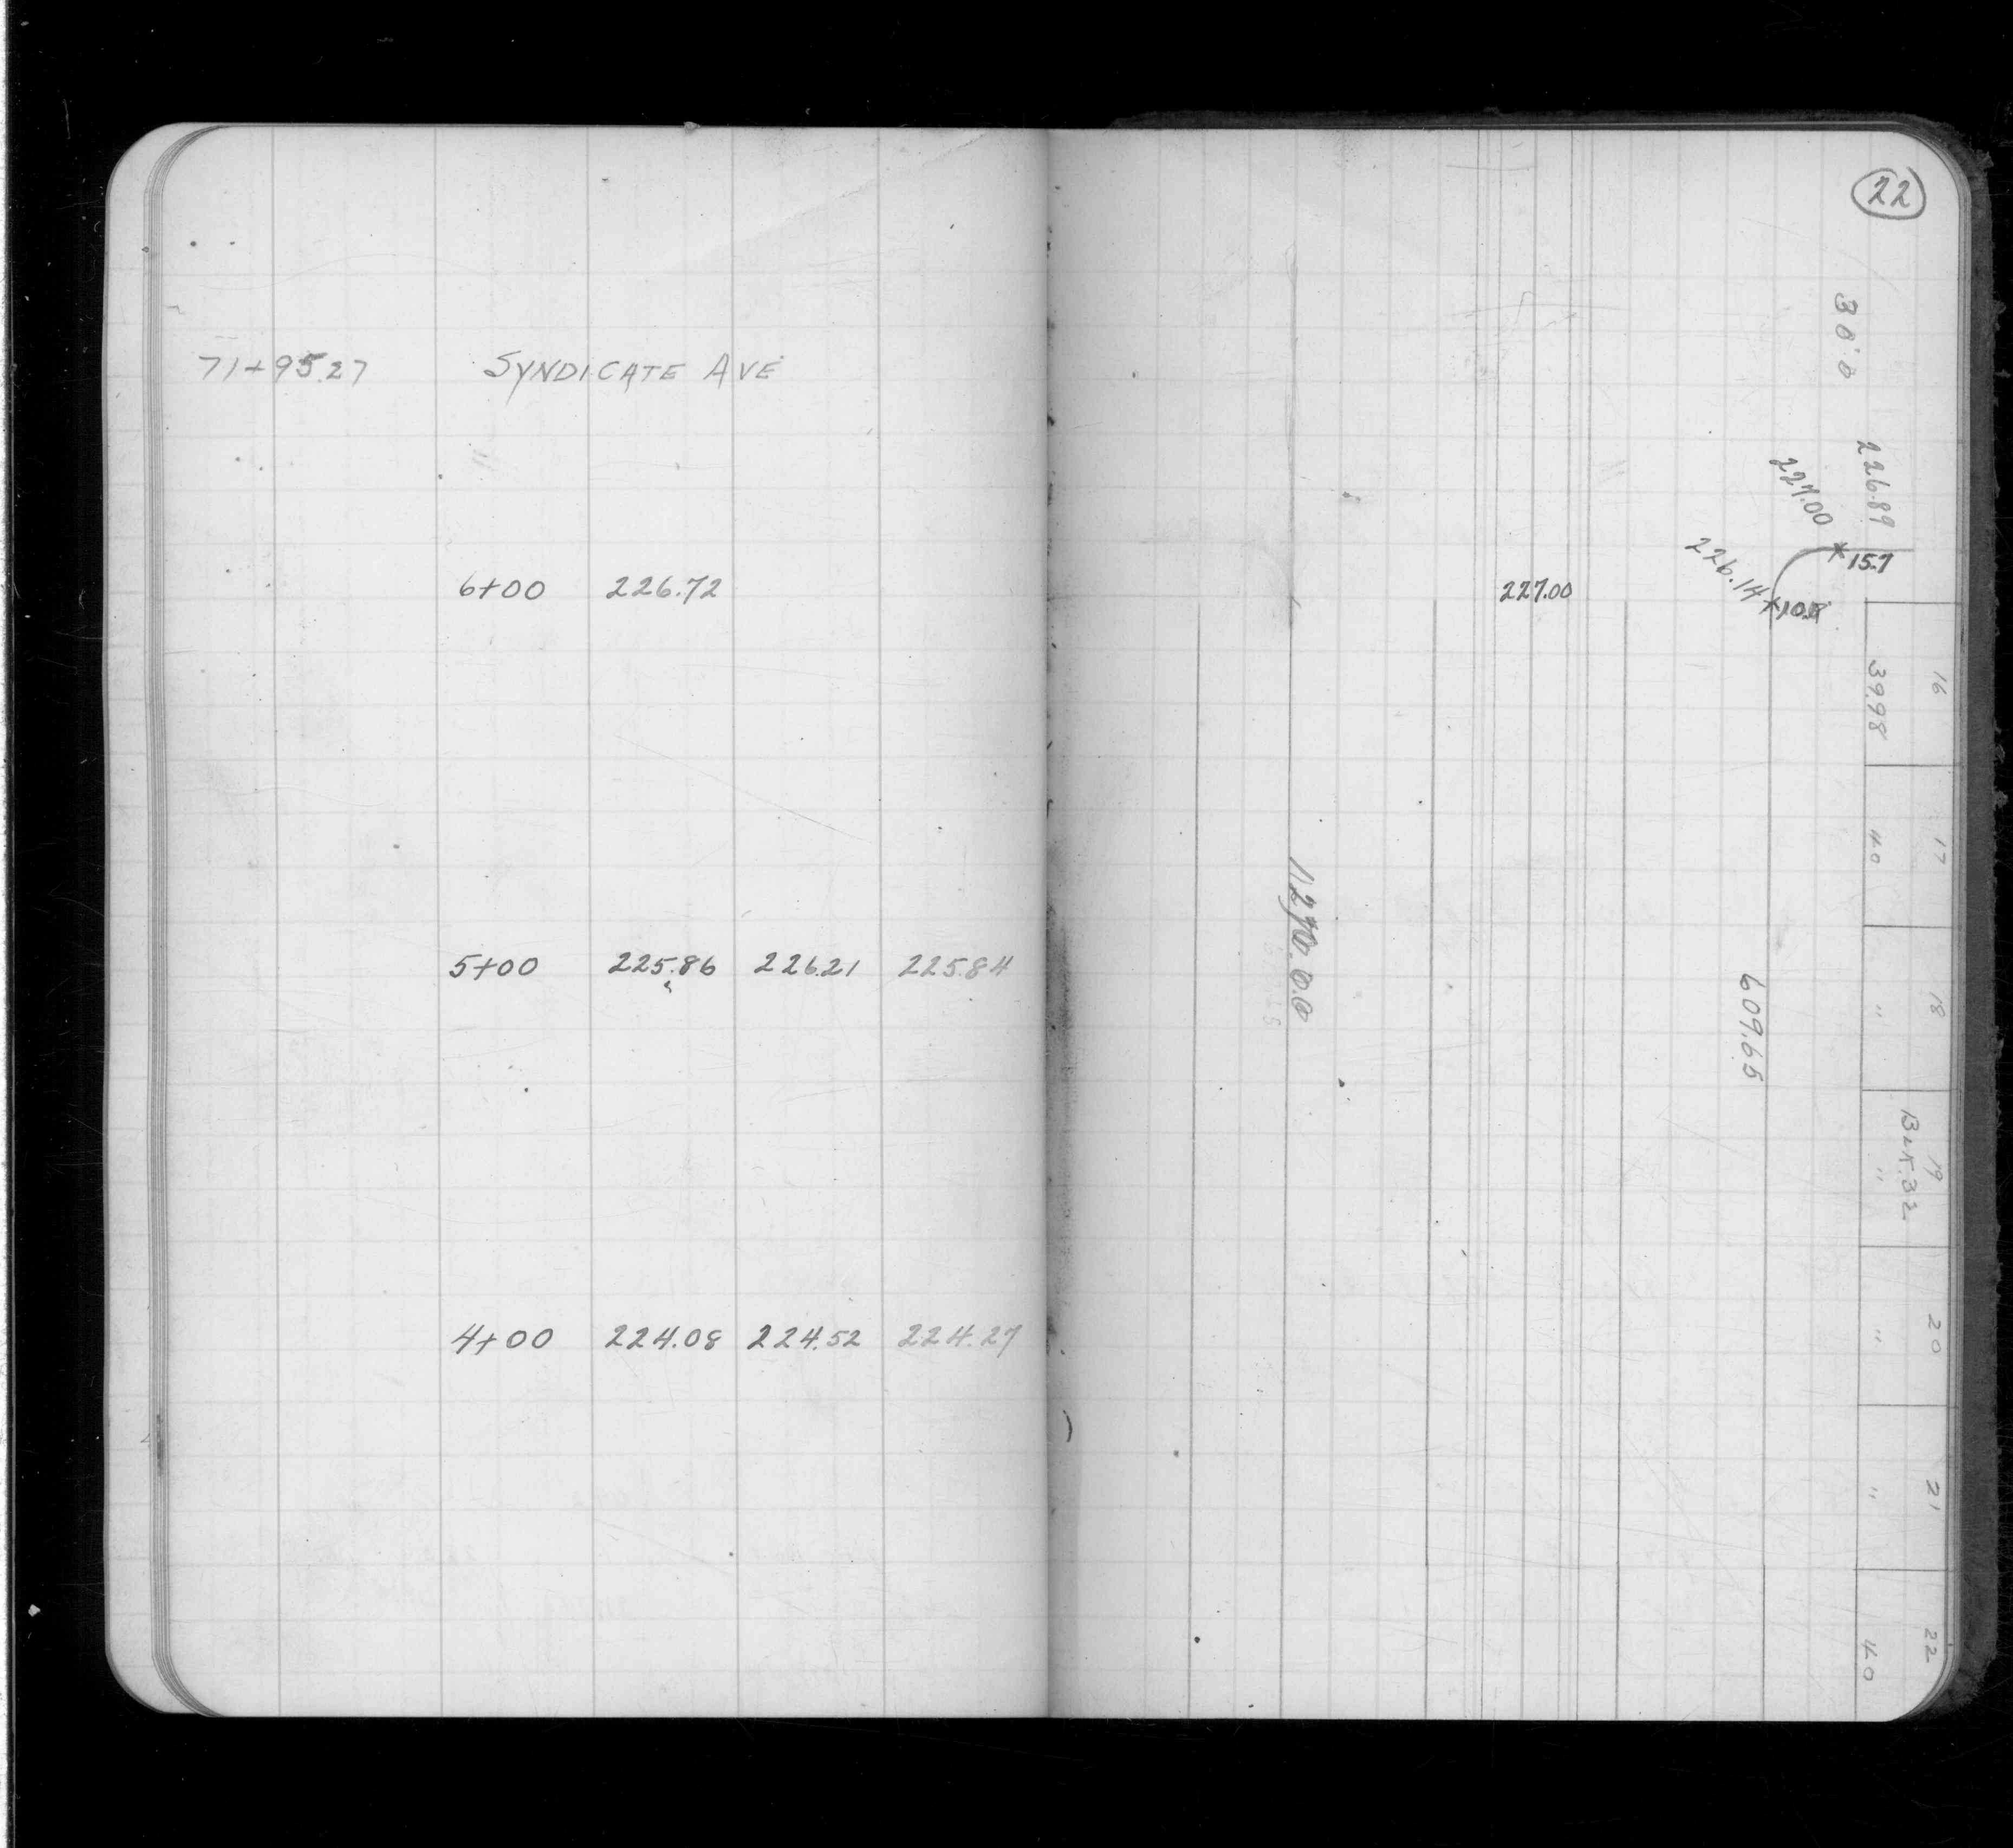 22
71+95.27 SYNDICATE AVE
6+00 226.72
5+00 225.86 226.21 225.84
4+00 224.08 224.52 224.27
30.0
226.89
227.00
15.7
226.14
10.8
227.00
609.65
16
39.98
17
40
18
"
19
"
20
"
21
"
22
40